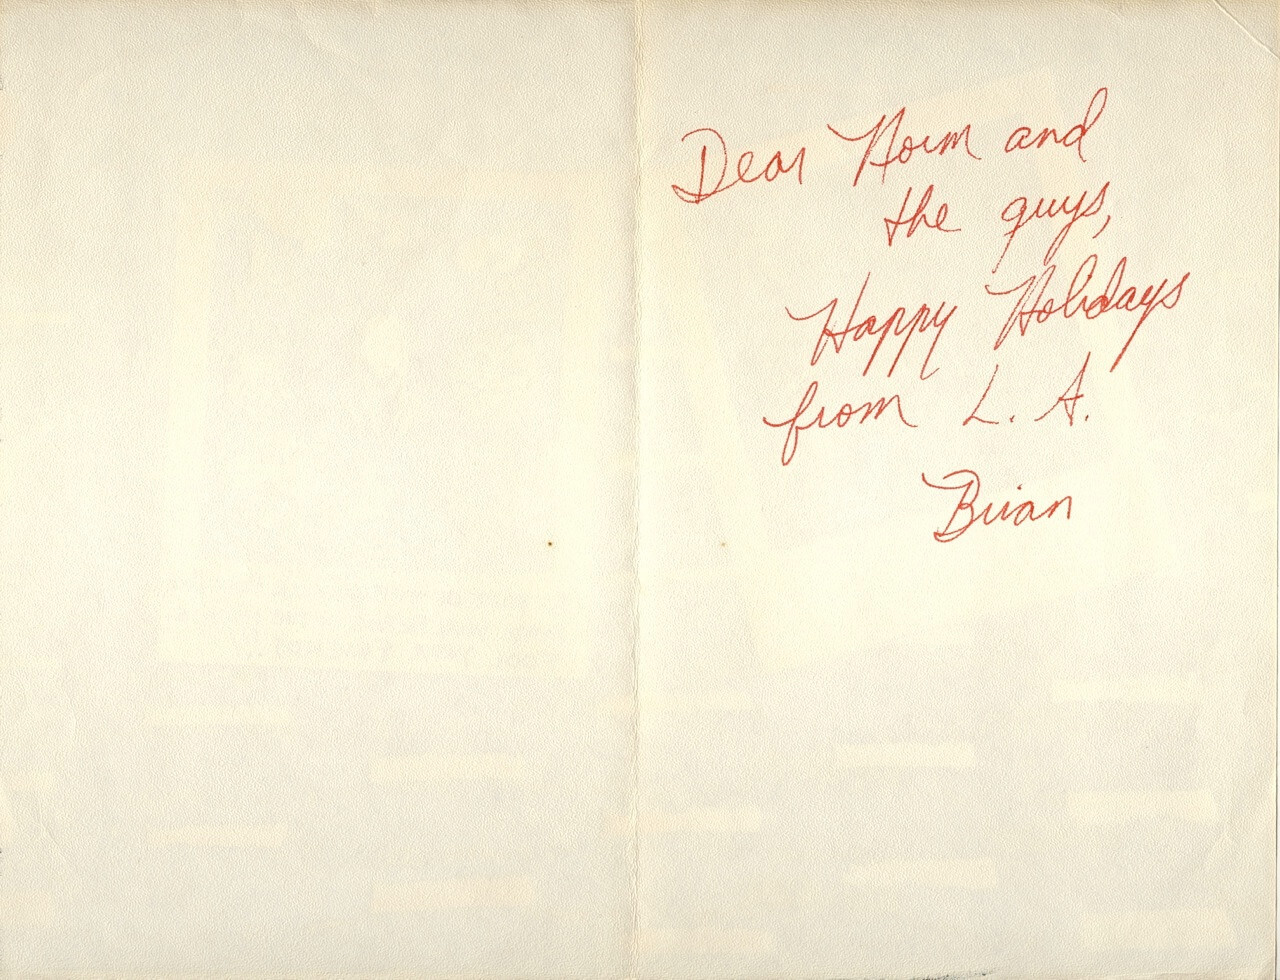 Dear Norm and
the guys,
Happy Holidays
from L. A.
Brian